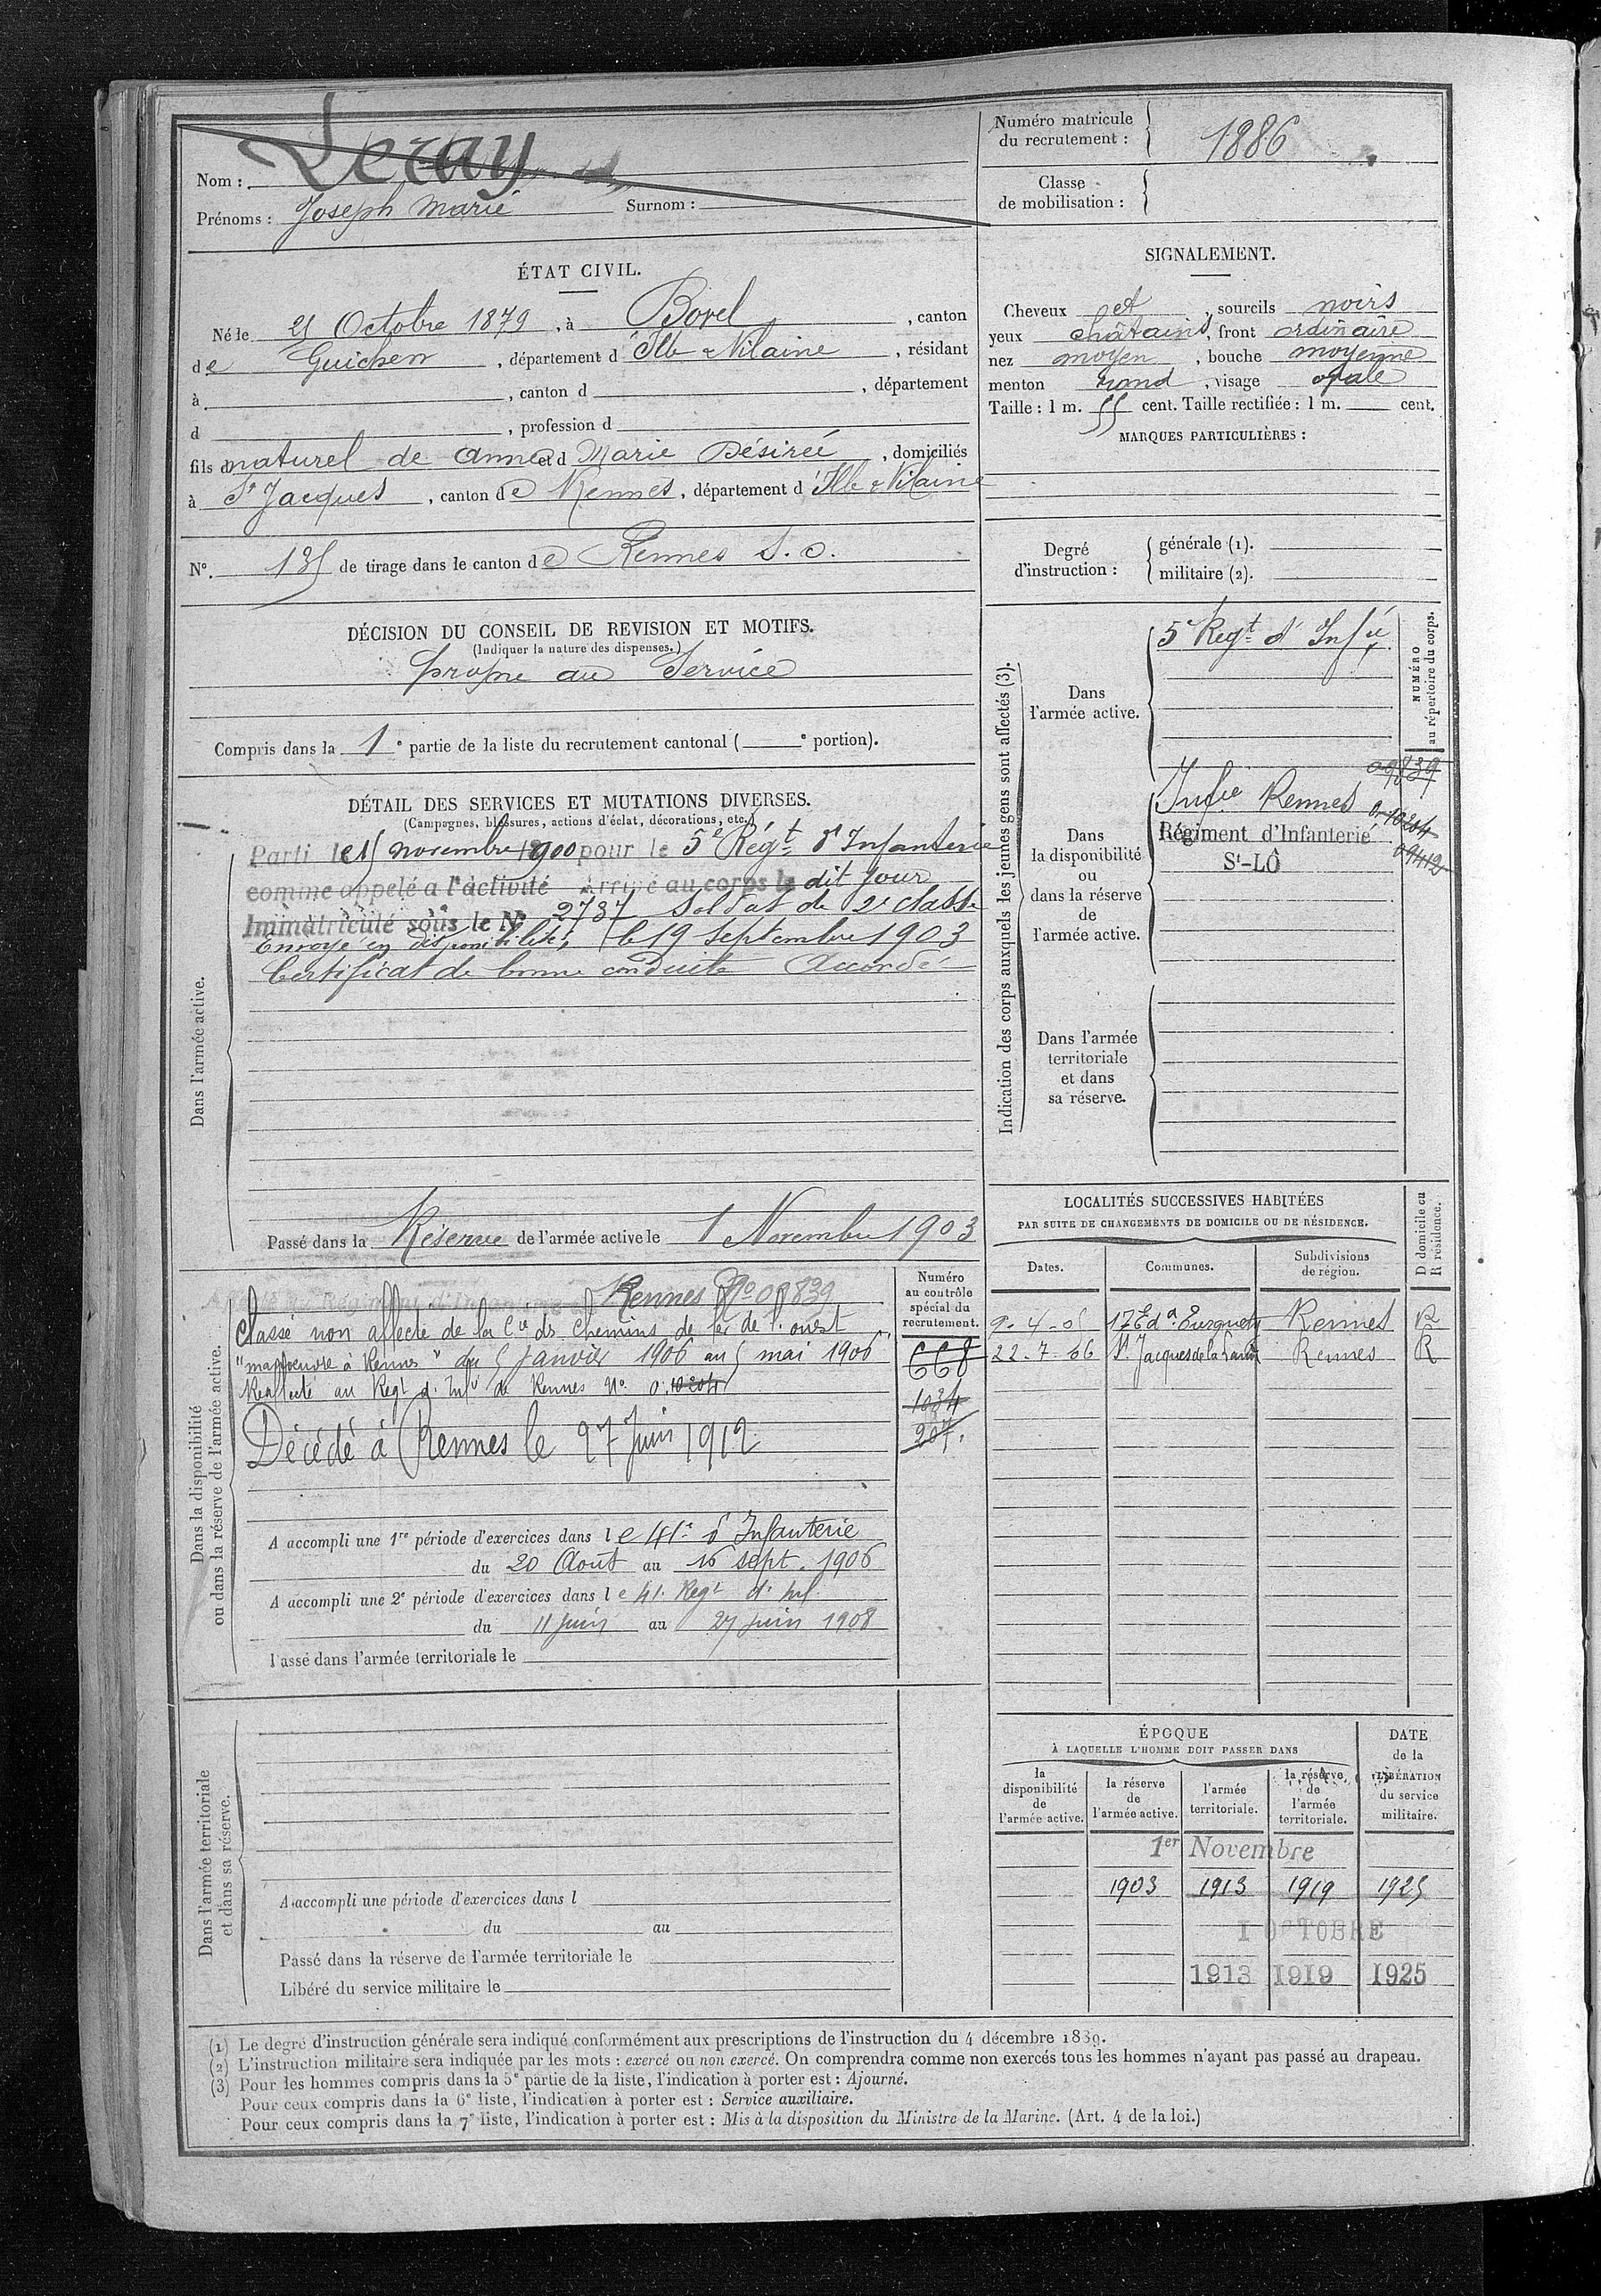 Nom : Leray
Prénoms : Joseph Marie Surnom :
Numéro matricule du recrutement : 1886
Classe de mobilisation :
ÉTAT CIVIL.
Né le Octobre 1879, à Bovel, canton
de Guichen, département d Ille & Vilaine, résidant
à , canton d , département
d , profession d
fils d naturel de Anne et d Marie Désirée, domiciliés
à St Jacques, canton de Rennes, département d Ille & Vilaine
N°. de tirage dans le canton de Rennes S. O.
SIGNALEMENT.
Cheveux et , sourcils noirs
yeux châtains, front ordinaire
nez moyen, bouche moyenne
menton rond, visage ovale
Taille : 1 m. 55 cent. Taille rectifiée : 1 m. cent.
MARQUES PARTICULIÈRES :
Degré d'instruction :
générale (1).
militaire (2).
DÉCISION DU CONSEIL DE REVISION ET MOTIFS.
(Indiquer la nature des dispenses.)
propre au Service
Compris dans la 1e partie de la liste du recrutement cantonal ( e portion).
DÉTAIL DES SERVICES ET MUTATIONS DIVERSES.
(Campagnes, blessures, actions d'éclat, décorations, etc.)
Dans l'armée active.
Parti le 15 novembre 1900 pour le 5e Régt d'Infanterie
comme appelé a l'activité Arrivé au corps le dit jour
Immatriculé sous le N° 2737 Soldat de 2e classe
Envoyé en disponibilité, le 19 Septembre 1903
Certificat de bonne conduite Accordé
Passé dans la Réserve de l'armée active le 1 Novembre 1903
Indication des corps auxquels les jeunes gens sont affectés (3).
NUMÉRO au répertoire du corps.
Dans l'armée active.
5e Regt d' Infie
09839
Dans la disponibilité ou dans la réserve de l'armée active.
Infie Rennes 0.10204
Régiment d'Infanterie 09412
St-LÔ
Dans l'armée territoriale et dans sa réserve.
LOCALITÉS SUCCESSIVES HABITÉES
PAR SUITE DE CHANGEMENTS DE DOMICILE OU DE RÉSIDENCE.
D domicile ou R résidence.
Dates. Communes. Subdivisions de région.
9-4-05 Rennes R
22-7-06 St Jacques de la Lande Rennes R
Dans la disponibilité ou dans la réserve de l'armée active.
Numéro au contrôle spécial du recrutement.
Affecté au Régiment d'Infanterie de Rennes No 09839
Classé non affecté de la Cie des Chemins de fer de l'ouest
"manoeuvre à Rennes" du 5 Janvier 1906 au 5 mai 1906
Réaffecté au Regt d'Infie de Rennes No 0.10204
668
668
1034
207.
Décédé à Rennes le 27 Juin 1912
A accompli une 1re période d'exercices dans le 41e d'Infanterie
du 20 Août au 16 sept. 1906
A accompli une 2e période d'exercices dans le 41. Regt d'Inf.
du 11 juin au 27 juin 1908
Passé dans l'armée territoriale le
Dans l'armée territoriale et dans sa réserve.
A accompli une période d'exercices dans l
du au
Passé dans la réserve de l'armée territoriale le
Libéré du service militaire le
ÉPOQUE
À LAQUELLE L'HOMME DOIT PASSER DANS
la disponibilité de l'armée active.
la réserve de l'armée active.
l'armée territoriale.
la réserve de l'armée territoriale.
DATE de la LIBÉRATION du service militaire.
1er Novembre
1903 1913 1919 1925
1 OCTOBRE
1913 1919 1925
(1) Le degré d'instruction générale sera indiqué conformément aux prescriptions de l'instruction du 4 décembre 1889.
(2) L'instruction militaire sera indiquée par les mots : exercé ou non exercé. On comprendra comme non exercés tous les hommes n'ayant pas passé au drapeau.
(3) Pour les hommes compris dans la 5e partie de la liste, l'indication à porter est : Ajourné.
Pour ceux compris dans la 6e liste, l'indication à porter est : Service auxiliaire.
Pour ceux compris dans la 7e liste, l'indication à porter est : Mis à la disposition du Ministre de la Marine. (Art. 4 de la loi.)